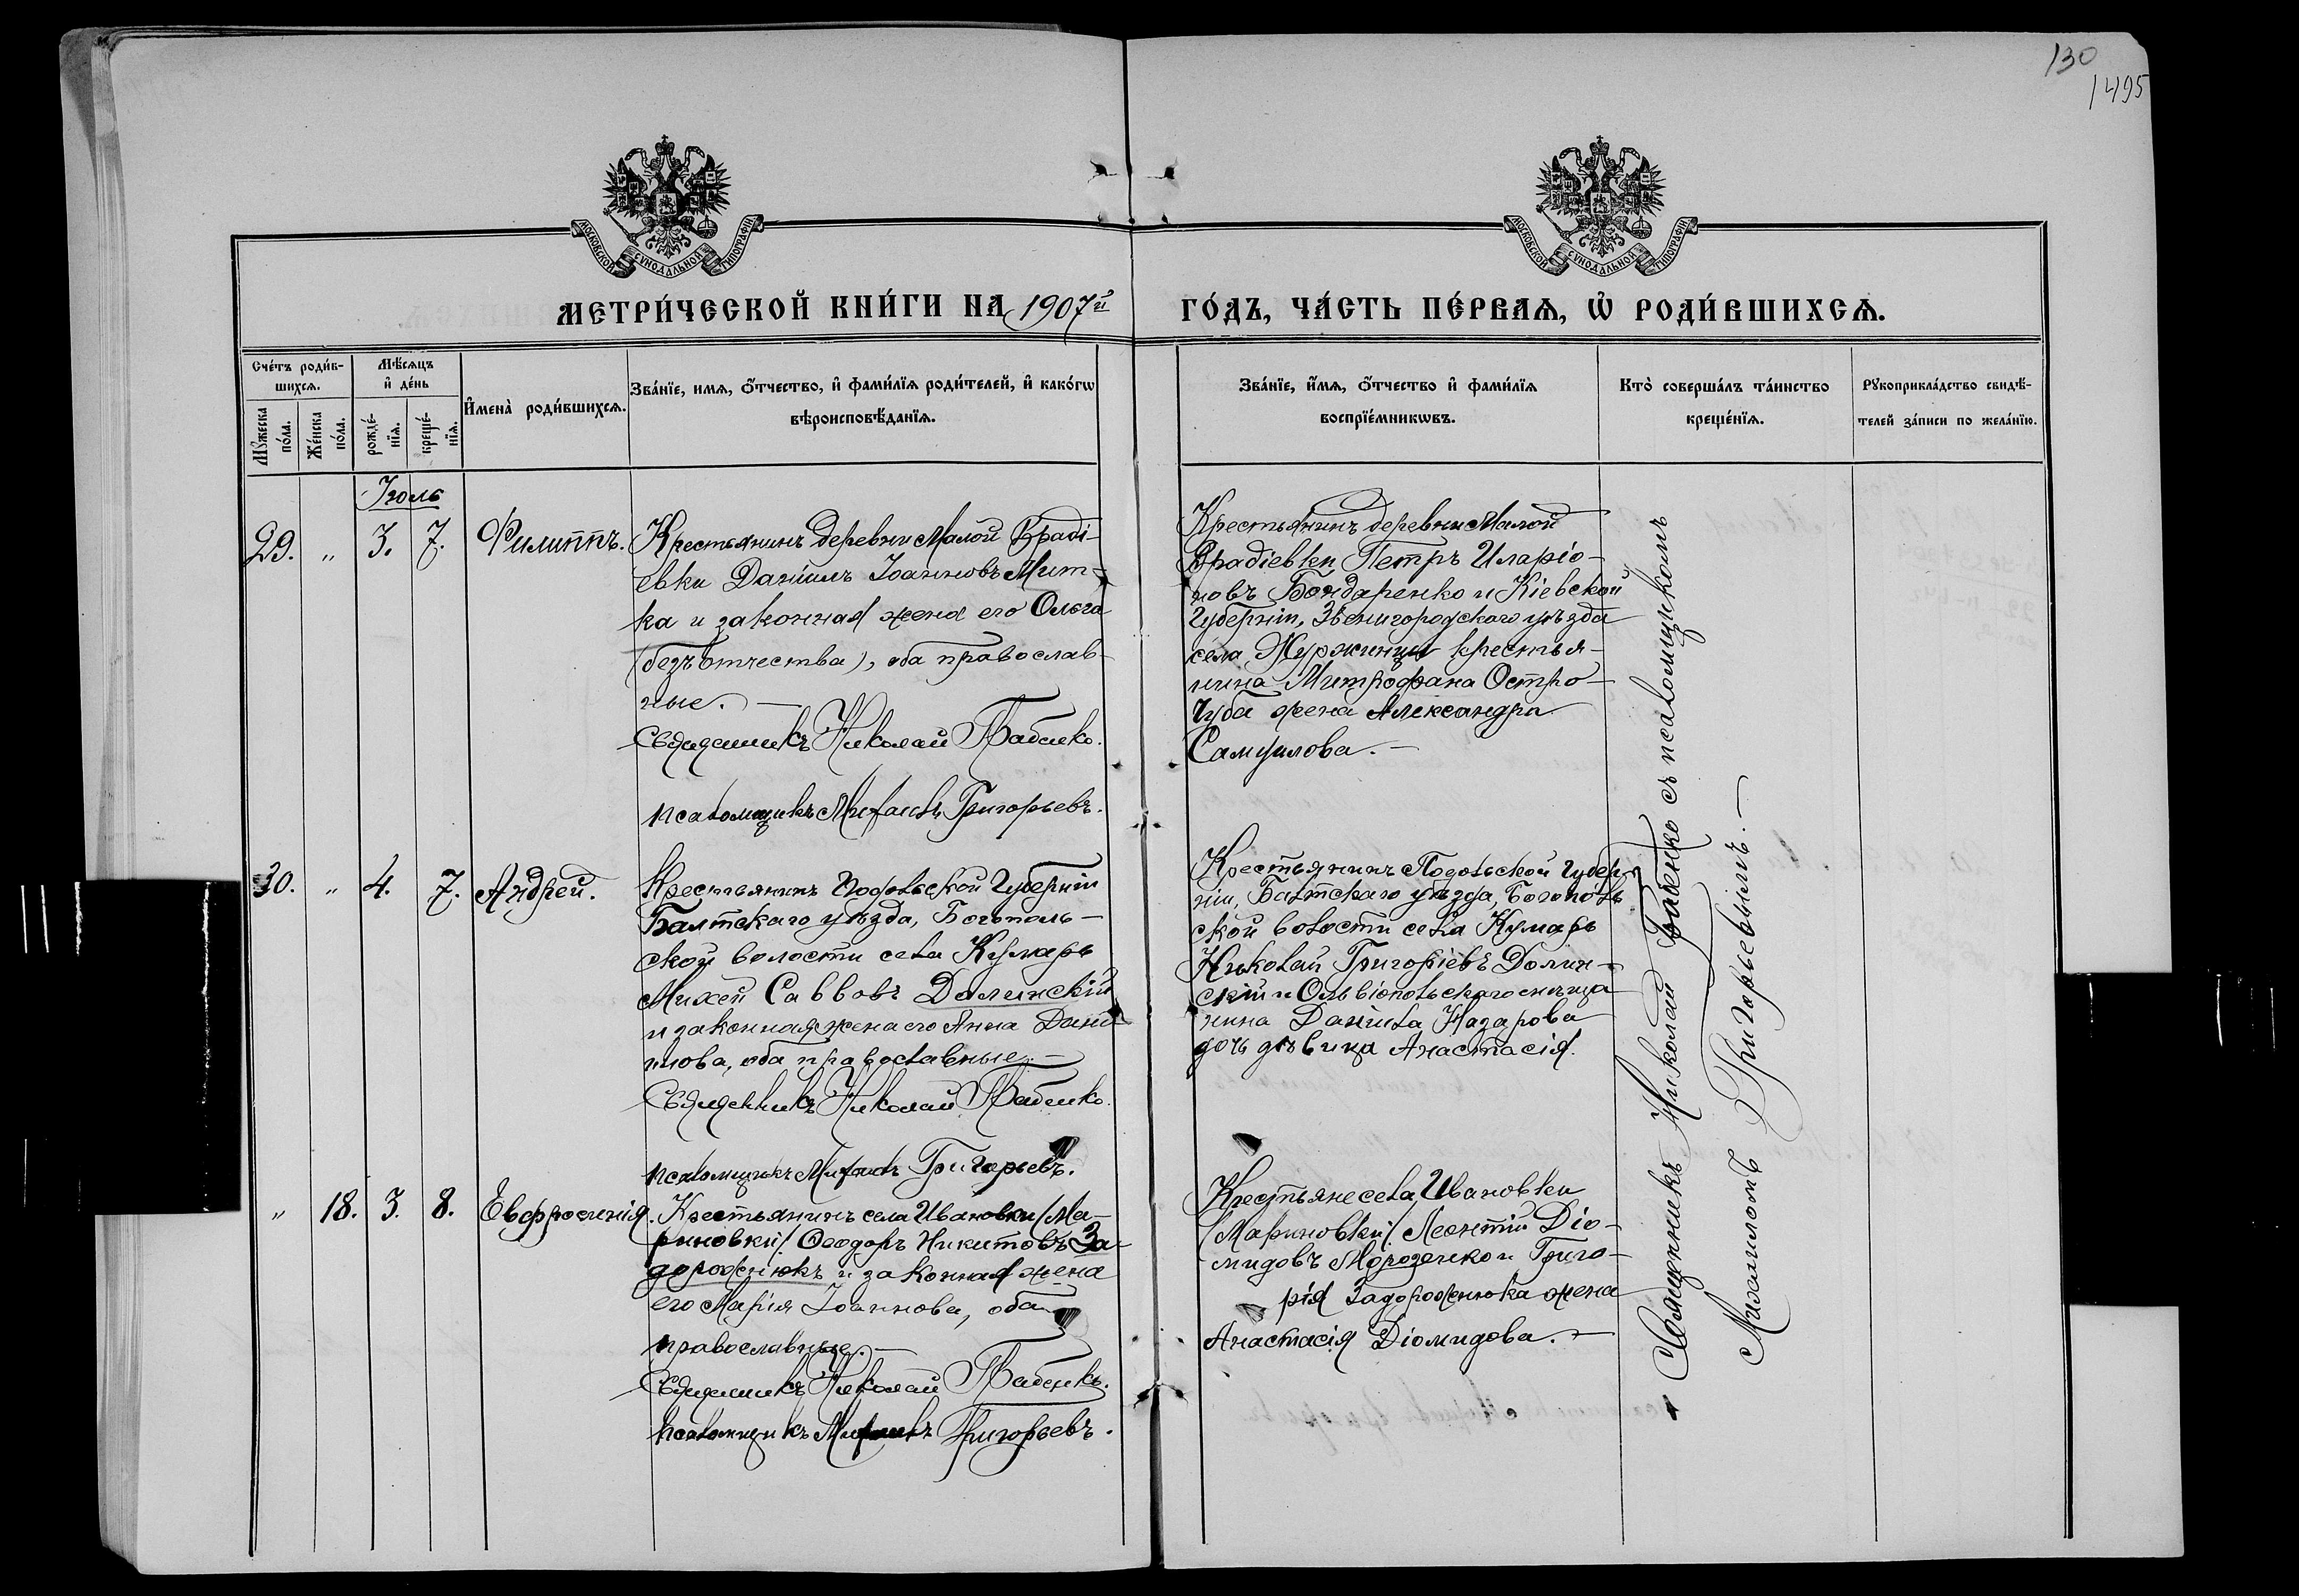 130
1495
МОСКОВСКОЙ СѴНОДАЛЬНОЙ ТИПОГРАФІИ
МОСКОВСКОЙ СѴНОДАЛЬНОЙ ТИПОГРАФІИ
МЕТРИ́ЧЕСКОЙ КНИ́ГИ НА 1907й ГО́ДЪ, ЧА́СТЬ ПЕ́РВАѦ, Ѡ РОДИ́ВШИХСѦ.
Сче́тъ роди́в-
шихсѧ.
Мꙋжеска
по́ла.
Же́нска
по́ла.
Мѣ́сѧцъ
и҆ де́нь
рожде́-
нїѧ.
креще́-
нїѧ.
И҆мена̀ роди́вшихсѧ.
Зва́нїе, имѧ, ѻ҆́тчество, и҆ фами́лїѧ роди́телей, и҆ како́гѡ
вѣроисповѣ́данїѧ.
Зва́нїе, и҆́мѧ, ѻ҆́тчество и҆ фами́лїѧ
воспрїе́мникѡвъ.
Кто̀ соверша́лъ та́инство
креще́нїѧ.
Рꙋкоприкла́дство свидѣ́-
телей за́писи по жела́нїю.
Іюль
29. „ 3. 7. Филиппъ.
Крестьянинъ деревни Малой Враді-
евки Даніилъ Іоанновъ Мит-
ка и законная жена его Ольга
(безъ отчества), оба православ-
ные. —
Священникъ Николай Бабенко.
псаломщикъ Михаилъ Григорьевъ.
Крестьянинъ деревни Малой
Врадіевки Петръ Иларіо-
новъ Бондаренко и Кіевской
Губерніи, Звенигородскаго уѣзда
села Журжинцы крестья-
нина Митрофана Остро-
чуба жена Александра
Самуилова. —
30. „ 4. 7. Андрей.
Крестьянинъ Подольской Губерніи
Балтскаго уѣзда, Богополь-
ской волости села Кумарь
Михей Саввовъ Долинскій
и законная жена его Анна Дани-
илова, оба православные. —
Священникъ Николай Бабенко.
псаломщикъ Михаилъ Григорьевъ.
Крестьянинъ Подольской Губер-
ніи, Балтскаго уѣзда, Богополь
ской волости села Кумарь
Николай Григоріевъ Долин-
скій и Ольвіопольскаго мѣща
нина Даніила Назарова
дочь дѣвица Анастасія.
„ 18. 3. 8. Евфросинія.
Крестьянинъ села Ивановки /Ма-
риновки/. Ѳеодоръ Никитовъ За-
дорожнюкъ и законная жена
его Марія Іоаннова, оба
православные. —
Священникъ Николай Бабенко.
псаломщикъ Михаилъ Григорьевъ.
Крестьяне села Ивановки
/Мариновки/. Леонтій Діо-
мидовъ Морозенко и Григо-
рія Задорожнюка жена
Анастасія Діомидова. —
Священникъ Николай Бабенко съ псаломщикомъ
Михаиломъ Григорьевымъ. —